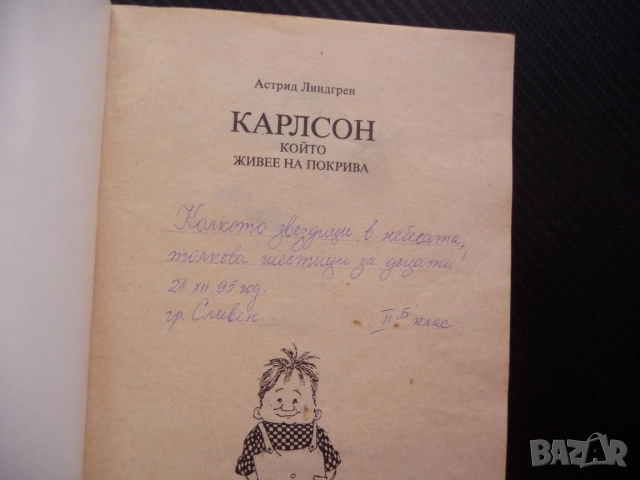 Астрид Линдгрен
КАРЛСОН
КОЙТО
ЖИВЕЕ НА ПОКРИВА
Колкото звездици в небесата,
толкова шестици за децата!
24. XII. 95 год.
гр. Сливен
II б клас
BAZAR.bg